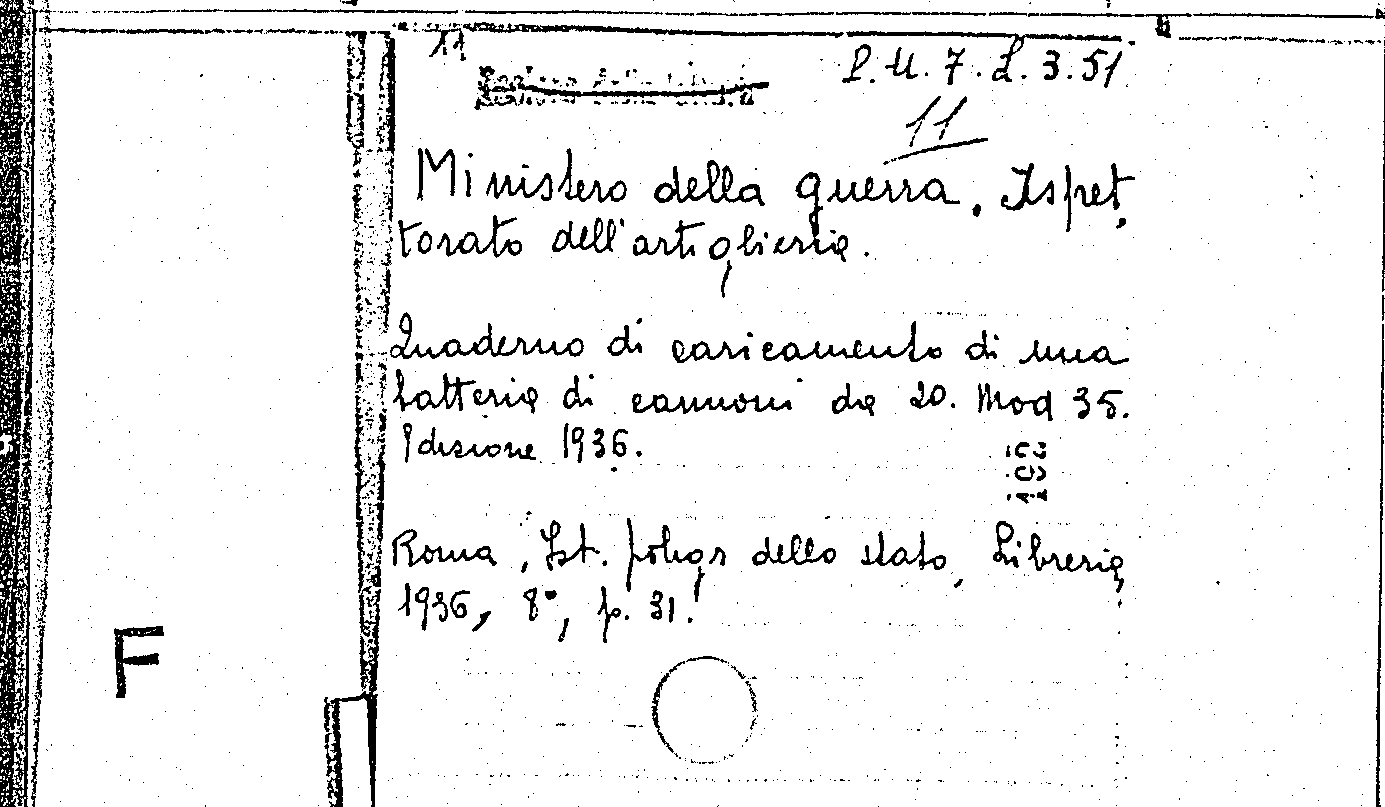 11
P.U.7.L.3.51
11
Ministero della guerra. Ispet,
torato dell'artiglieria.
Quaderno di caricamento di una
batteria di cannoni da 20. Mod 35.
Edizione 1936.
Roma, Ist. poligr dello stato, Libreria,
1936, 8°, p. 31.
F